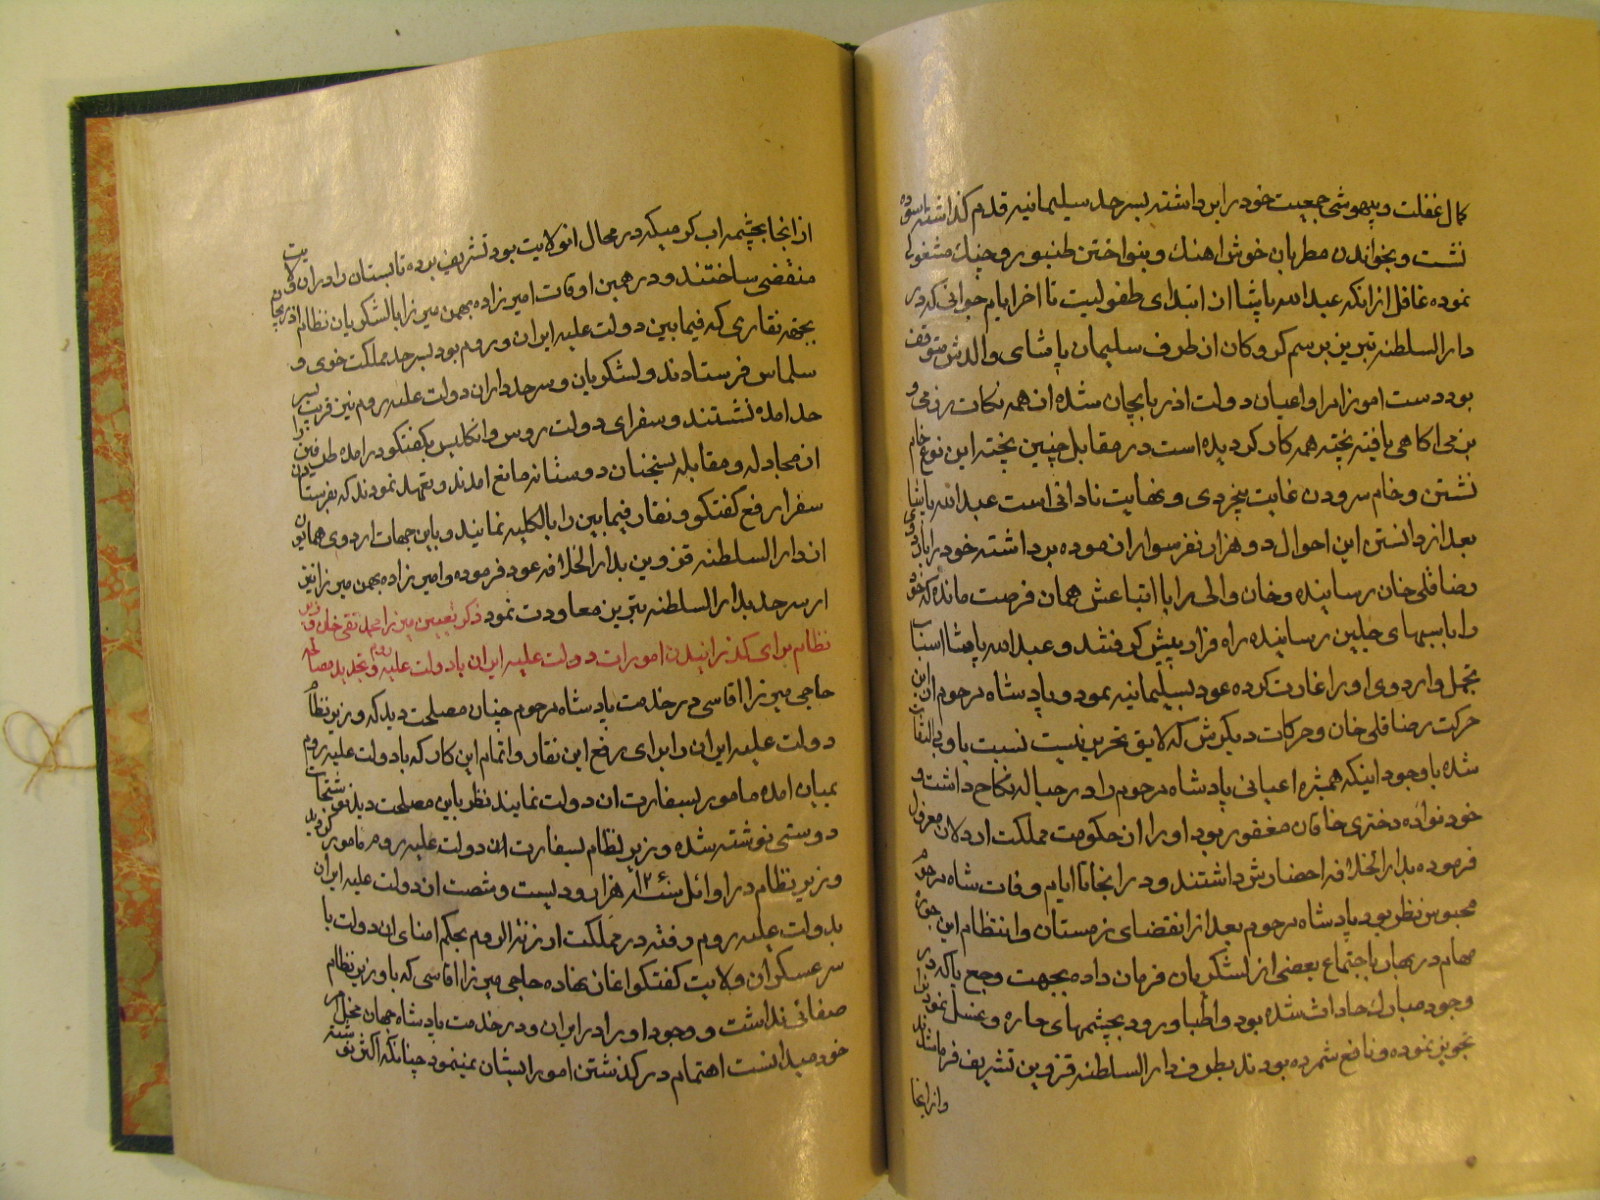 کمال غفلت و بیهوشی جمعیت خود را برداشته بسرحد سلیمانیه قدم گذاشته آسوده
نشست و بخواندن مطربان خوش اهنك و بنواختن طنبور و چنك مشغولی
نموده غافل از انکه عبدالله پاشا از ابتدای طفولیت تا اخر ایام جوانی که در
دارالسلطنه تبریز برسم کروکان از طرف سلیمان پاشای والدش متوقف
بود دست اموز امرا و اعیان دولت اذربایجان شده از همه نکات رزمی و
بزمی اکاهی یافته پخته همه کار کردیده است در مقابل چنین پخته این نوع خام
نشستن و خام سرودن غایت بیخردی و نهایت نادانی است عبدالله پاشا
بعد از دانستن این احوال دو هزار نفر سواران موده برداشته خود را باردوی
رضاقلی خان رسانیده و خان والی را با اتباعش همان فرصت مانده که خود
را با سبهای جلین رسانیده راه فرار پیش کرفتند و عبدالله پاشا اسباب
تجمل و اردوی او را غارت کرده عود بسلیمانیه نمود و پادشاه مرحوم از این
حرکت رضاقلی خان و حرکات دیکرش که لایق تحریر نیست نسبت باو بی التفات
شده با وجود اینکه همشیره اعیانی پادشاه مرحوم را در حباله نکاح داشت و
خود نواده دختری خاقان مغفور بود او را از حکومت مملکت اردلان معزول
فرموده بدارالخلافه احضارش داشتند و در انجا تا ایام وفات شاه مرحوم
محبوس نظر بود پادشاه مرحوم بعد از انقضای زمستان و انتظام این جوره
مهام در بهار باجتماع بعضی از لشکریان فرمان داده بجهت وجع پا که در
وجود مبارك حادث شده بود و اطبا ورود بچشمهای حاره و غسل نمودن را
تجویز نموده و نافع شمرده بودند بطرف دارالسلطنه قزوین تشریف فرما شدند
و از انجا
از انجا بچشمه اب کرمیکه در محال انولایت بود تشریف برده تابستان را در ان ولایت
منقضی ساختند و در همین اوقات امیرزاده بهمن میرزا با لشکریان نظام اذربایجان
بجهة نقاری که فیمابین دولت علیه ایران و روم بود بسرحد مملکت خوی و
سلماس فرستادند و لشکریان و سرحدداران دولت علیه روم نیز قریب بسر
حد امده نشستند و سفرای دولت روس و انکلیس بکفتکو در امده طرفین را
از مجادله و مقابله بسخنان دوستانه مانع امدند و تعهد نمودند که بفرستادن
سفرا رفع کفتکو و نقار فیمابین را بالکلیه نمایند و باین جهات اردوی همایون
از دارالسلطنه قزوین بدارالخلافه عود فرموده و امیرزاده بهمن میرزا نیز
از سرحد بدارالسلطنه تبریز معاودت نمود ذکر تعیین میرزا محمد تقی خان وزیر
نظام برای کذرانیدن امورات دولت علیه ایران با دولت علیه روم و تجدید مصالحه
حاجی میرزا اقاسی در خدمت پادشاه مرحوم چنان مصلحت دید که وزیر نظام
دولت علیه ایران را برای رفع این نقار و اتمام این کار که با دولت علیه روم
بمیان امده مامور بسفارت ان دولت نمایند نظر باین مصلحت دید نوشتجات
دوستی نوشته شده وزیر نظام بسفارت ان دولت علیه روم مامور کردید
وزیر نظام در اوائل سنه ۱۲۶۰ هزار و دویست و شصت از دولت علیه ایران
بدولت علیه روم رفته در مملکت ارزنة الروم بحکم امنای ان دولت با
سرعسکر ان ولایت کفتکو اغاز نهاده حاجی میرزا اقاسی که با وزیر نظام
صفائی نداشت و وجود او را در ایران و در خدمت پادشاه جهان مخل امر
خود میدانست اهتمام در کذشتن امور ایشان نمینمود چنانکه اکثر نوشته